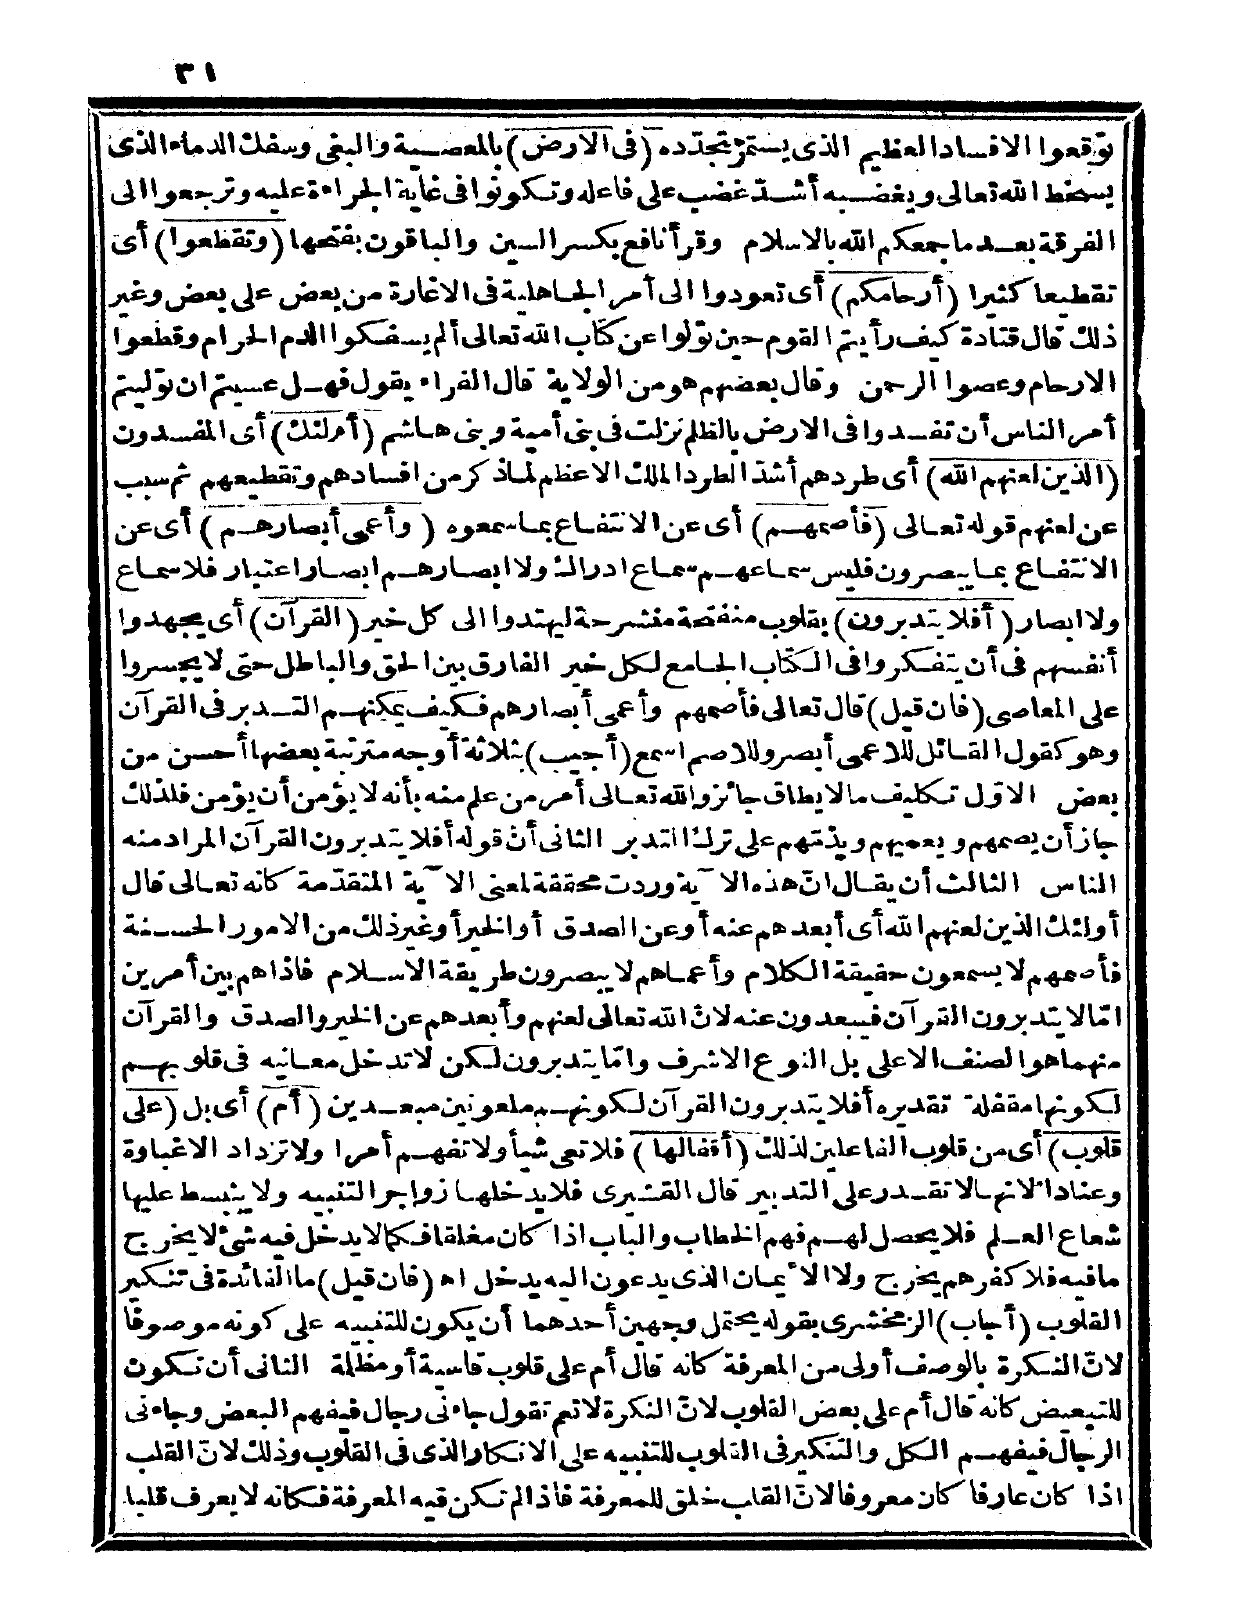 ٣١
توقعوا الافساد العظيم الذى يستمرّ تجدّده (فى الارض) بالمعصية والبغى وسفك الدماء الذى
يسخط الله تعالى ويغضبه أشدّ غضب على فاعله وتكونوا فى غاية الجراءة عليه وترجعوا الى
الفرقة بعد ما جمعكم الله بالاسلام وقرأ نافع بكسر السين والباقون بفتحها (وتقطعوا) أى
تقطيعا كثيرا (أرحامكم) أى تعودوا الى أمر الجاهلية فى الاغارة من بعض على بعض وغير
ذلك قال قتادة كيف رأيتم القوم حين تولوا عن كتاب الله تعالى ألم يسفكوا الدم الحرام وقطعوا
الارحام وعصوا الرحمن وقال بعضهم هو من الولاية قال الفراء يقول فهل عسيتم ان توليتم
أمر الناس أن تفسدوا فى الارض بالظلم نزلت فى بنى أمية وبنى هاشم (أولئك) أى المفسدون
(الذين لعنهم الله) أى طردهم أشدّ الطرد الملك الاعظم لما ذكر من افسادهم وتقطيعهم ثم سبب
عن لعنهم قوله تعالى (فأصمهم) أى عن الانتفاع بما سمعوه (وأعمى أبصارهم) أى عن
الانتفاع بما يبصرون فليس سماعهم سماع ادراك ولا ابصارهم ابصار اعتبار فلا سماع
ولا ابصار (أفلا يتدبرون) بقلوب منفتحة منشرحة ليهتدوا الى كل خير (القرآن) أى يجهدوا
أنفسهم فى أن يتفكروا فى الكتاب الجامع لكل خير الفارق بين الحق والباطل حتى لا يجسروا
على المعاصى (فان قيل) قال تعالى فأصمهم وأعمى أبصارهم فكيف يمكنهم التدبر فى القرآن
وهو كقول القائل للاعمى أبصر وللاصم اسمع (أجيب) بثلاثة أوجه مترتبة بعضها أحسن من
بعض الاوّل تكليف ما لا يطاق جائز والله تعالى أمر من علم منه بأنه لا يؤمن أن يؤمن فلذلك
جاز أن يصمهم ويعميهم ويذمّهم على ترك التدبر الثانى أنّ قوله أفلا يتدبرون القرآن المراد منه
الناس الثالث أن يقال انّ هذه الآية وردت محققة لمعنى الآية المتقدّمة كانه تعالى قال
أولئك الذين لعنهم الله أى أبعدهم عنه أو عن الصدق أو الخير أو غير ذلك من الامور الحسنة
فأصمهم لا يسمعون حقيقة الكلام وأعماهم لا يبصرون طريقة الاسلام فاذا هم بين أمرين
امّا لا يتدبرون القرآن فيبعدون عنه لانّ الله تعالى لعنهم وأبعدهم عن الخير والصدق والقرآن
منهما هو الصنف الاعلى بل النوع الاشرف وامّا يتدبرون لكن لا تدخل معانيه فى قلوبهم
لكونها مقفلة تقديره أفلا يتدبرون القرآن لكونهم ملعونين مبعدين (أم) أى بل (على
قلوب) أى من قلوب الفاعلين لذلك (أقفالها) فلا تعى شيأ ولا تفهم أمرا ولا تزداد الا غباوة
وعنادا لانها لا تقدر على التدبير قال القشيرى فلا يدخلها زواجر التنبيه ولا ينبسط عليها
شعاع العلم فلا يحصل لهم فهم الخطاب والباب اذا كان مغلقا فكما لا يدخل فيه شئ لا يخرج
ما فيه فلا كفرهم يخرج ولا الايمان الذى يدعون اليه يدخل اه (فان قيل) ما الفائدة فى تنكير
القلوب (أجاب) الزمخشرى بقوله يحتمل وجهين أحدهما أن يكون للتنبيه على كونه موصوفا
لانّ النكرة بالوصف أولى من المعرفة كانه قال أم على قلوب قاسية أو مظلمة الثانى أن تكون
للتبعيض كانه قال أم على بعض القلوب لانّ النكرة لا تعم تقول جاءنى رجال فيفهم البعض وجاءنى
الرجال فيفهم الكل والتنكير فى القلوب للتنبيه على الانكار الذى فى القلوب وذلك لانّ القلب
اذا كان عارفا كان معروفا لانّ القلب خلق للمعرفة فاذا لم تكن فيه المعرفة فكانه لا يعرف قلبا